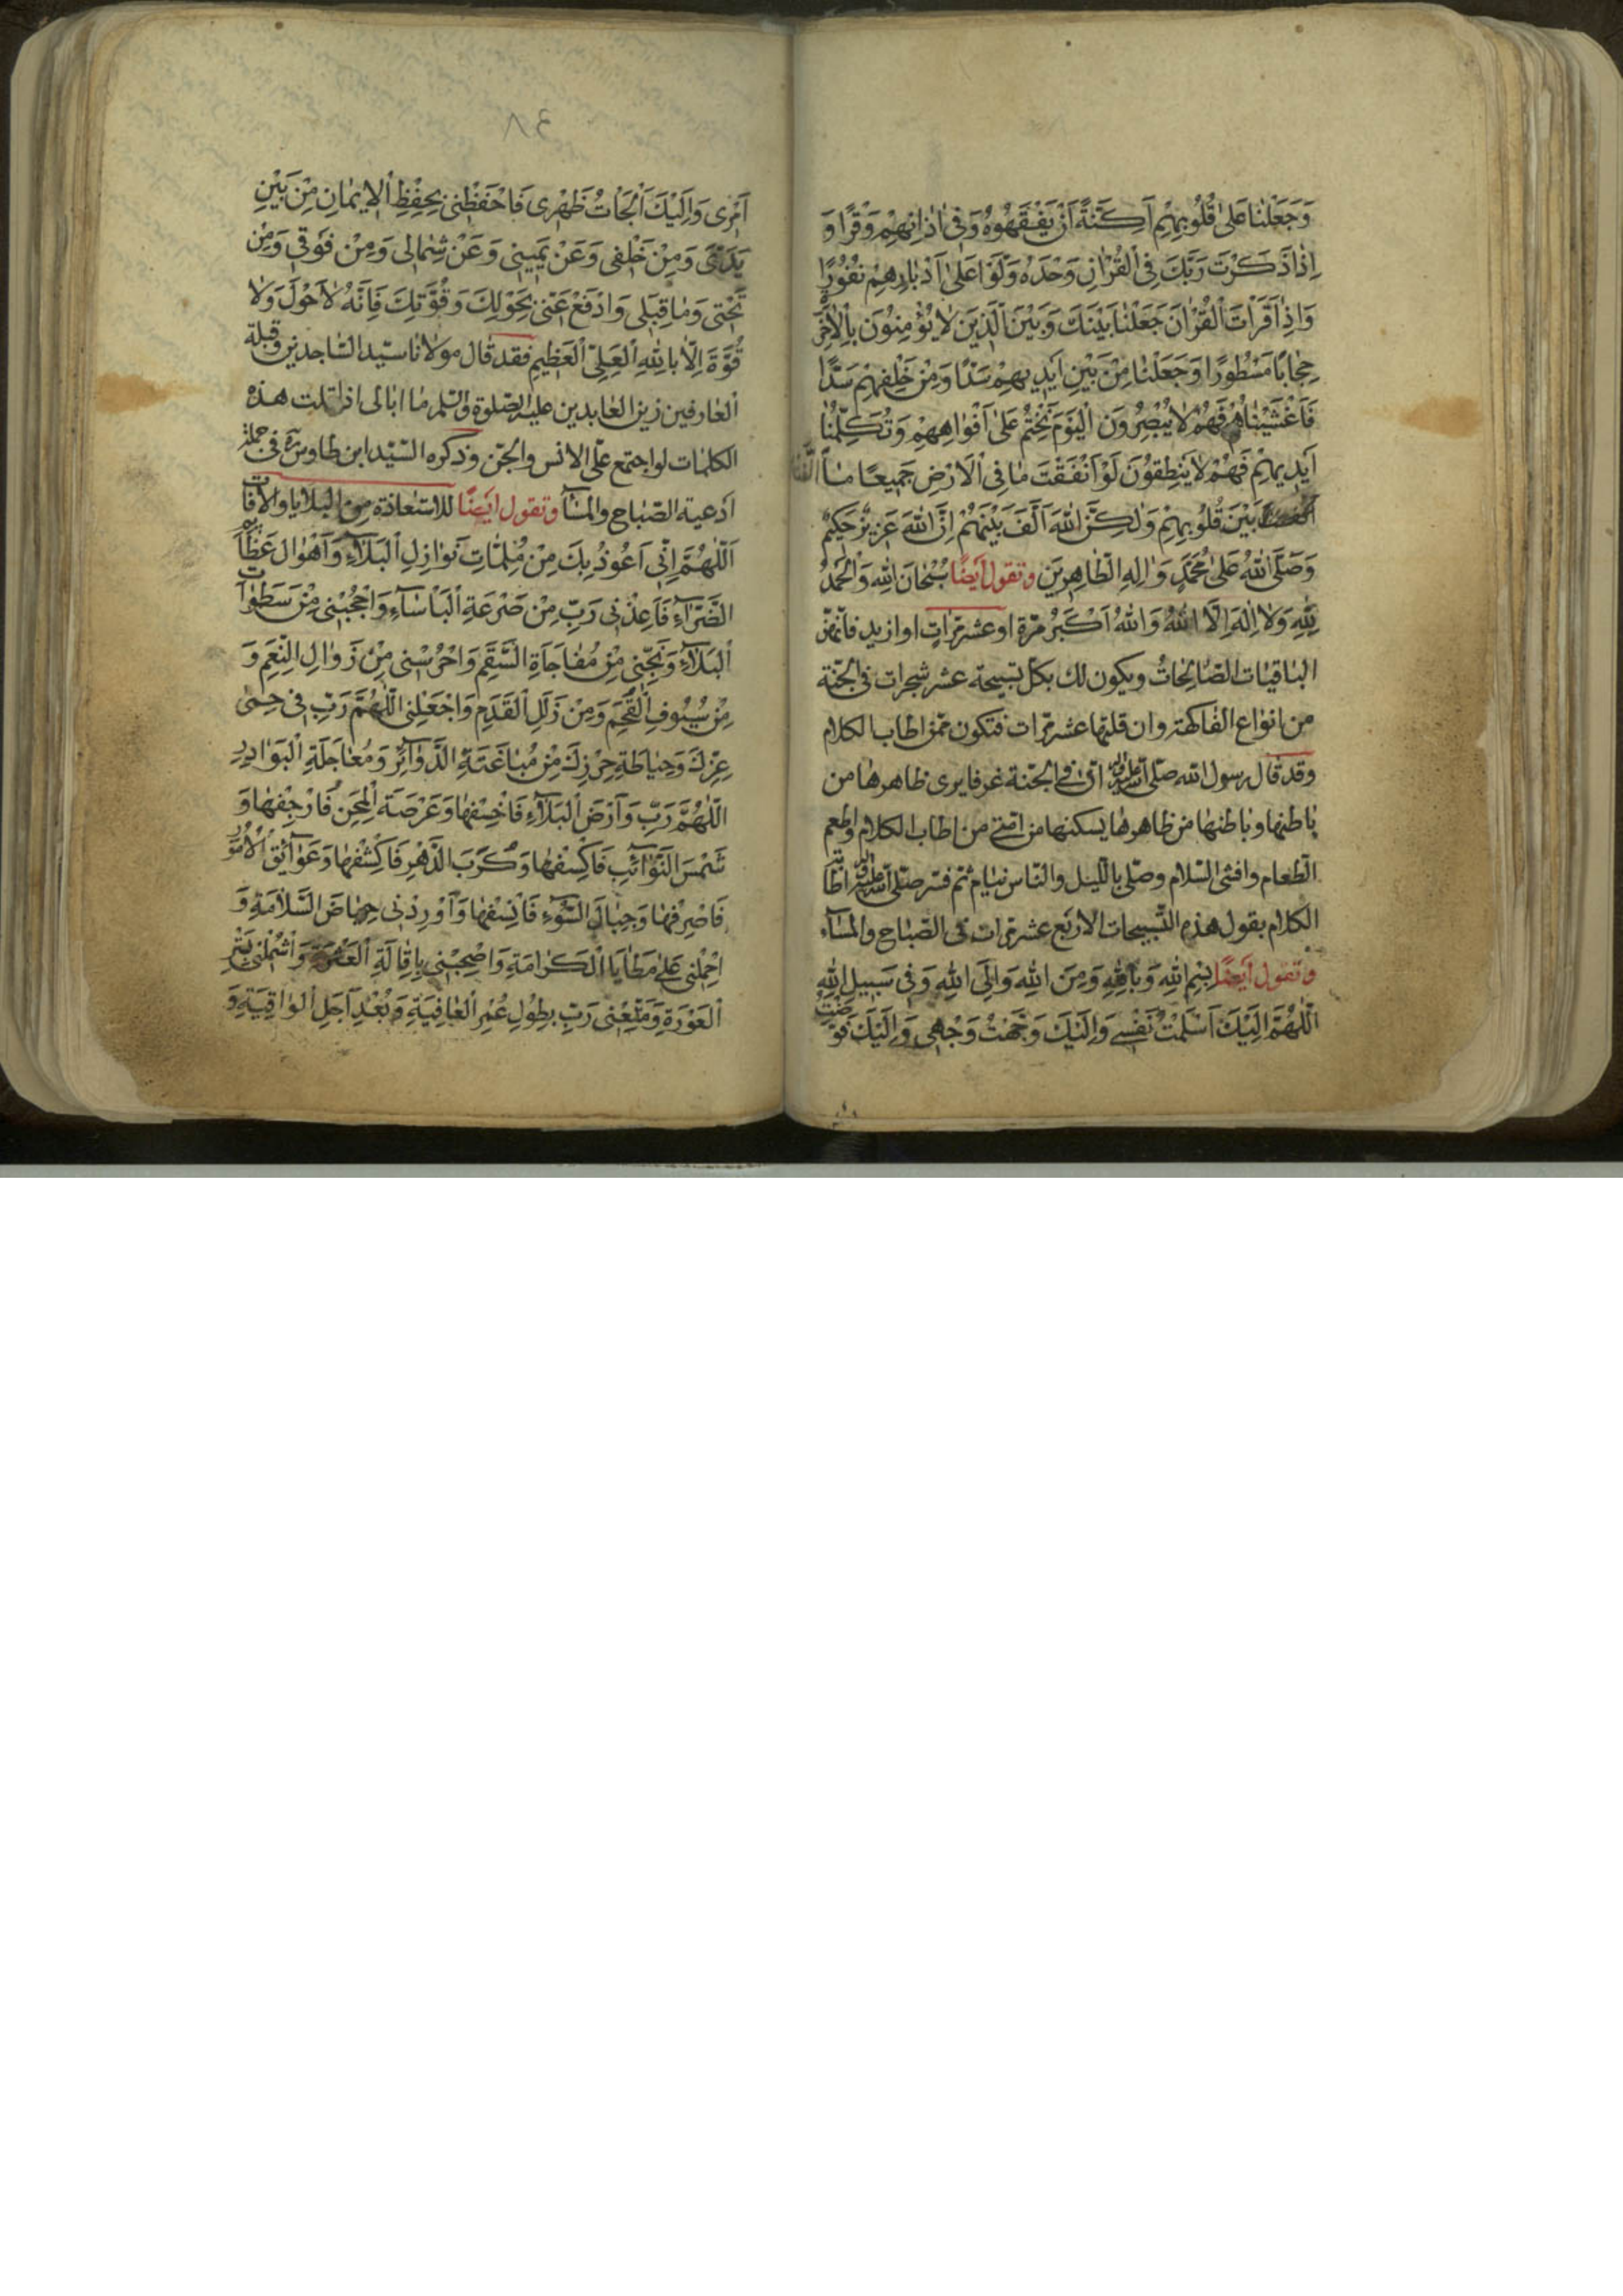 وَجَعَلْنَا عَلىٰ قُلُوبِهِمْ اَكِنَّةً اَنْ يَفْقَهُوهُ وَفى اٰذانِهِمْ وَقْرًا وَ
اِذٰا ذَكَرْتَ رَبَّكَ فِى الْقُرْاٰنِ وَحْدَهُ وَلَّوْا عَلىٰ اَدْبٰارِهِمْ نُفُورًا
وَاِذٰا قَرَأْتَ الْقُرْاٰنَ جَعَلْنٰا بَيْنَكَ وَبَيْنَ الَّذينَ لٰا يُؤْمِنُونَ بِالْاٰخِرَةِ
حِجٰابًا مَسْطُورًا وَجَعَلْنٰا مِنْ بَيْنِ اَيْديهِمْ سَدًّا وَمِنْ خَلْفِهِمْ سَدًّا
فَاَغْشَيْنٰاهُمْ فَهُمْ لٰا يُبْصِرُونَ اَلْيَوْمَ نَخْتِمُ عَلىٰ اَفْوٰاهِهِمْ وَتُكَلِّمُنٰا
اَيْديهِمْ فَهُمْ لٰا يَنْطِقُونَ لَوْ اَنْفَقْتَ مٰا فِى الْاَرْضِ جَميعًا مٰا اَلَّفْتَ
بَيْنَ قُلُوبِهِمْ وَلٰكِنَّ اللهَ اَلَّفَ بَيْنَهُمْ اِنَّ اللهَ عَزيزٌ حَكيمٌ
وَصَلَّى اللهُ عَلىٰ مُحَمَّدٍ وَاٰلِهِ الطّٰاهِرينَ وتقول اَيضًا سُبْحٰانَ اللهِ وَالْحَمْدُ
لِلّٰهِ وَلٰا اِلٰهَ اِلَّا اللهُ وَاللهُ اَكْبَرُ مرّة او عشر مرّاتٍ او ازيد فانّهنّ
الباقيات الصّالحاتُ ويكون لك بكلّ تسبيحة عشر شجرات فى الجنّة
من انواع الفاكهة وان قلتها عشر مرّات فتكون ممّن اطاب الكلام
وقد قال رسول الله صلّى الله عليه وآله انّ فى الجنّة غرفا يرى ظاهرها من
باطنها وباطنها من ظاهرها يسكنها من امّتى من اطاب الكلام واطعم
الطّعام وافشى السّلام وصلّى بالّليل والنّاس نيام ثم فسّر صلّى الله عليه وآله اطابة
الكلام بقول هذه التّسبيحات الاربع عشر مرّات فى الصّباح والمسآء
وتقول اَيضًا بِسْمِ اللهِ وَبِاللهِ وَمِنَ اللهِ وَاِلَى اللهِ وَفى سَبيلِ اللهِ
اَللّٰهُمَّ اِلَيْكَ اَسْلَمْتُ نَفْسى وَاِلَيْكَ وَجَّهْتُ وَجْهى وَاِلَيْكَ فَوَّضْتُ
٨٤
اَمْرى وَاِلَيْكَ اَلْجَأْتُ ظَهْرى فَاحْفَظْنى بِحِفْظِ الْايمٰانِ مِنْ بَيْنِ
يَدَىَّ وَمِنْ خَلْفى وَعَنْ يَمينى وَعَنْ شِمٰالى وَمِنْ فَوْقى وَمِنْ
تَحْتى وَمٰا قِبَلى وَادْفَعْ عَنّى بِحَوْلِكَ وَقُوَّتِكَ فَاِنَّهُ لٰا حَوْلَ وَلٰا
قُوَّةَ اِلّٰا بِاللهِ الْعَلِىِّ الْعَظيمِ فقد قال مولانا سيّد السّاجدين وقبلة
العارفين زين العابدين عليه الصّلوة والسّلم ما ابالى اذا قلت هذه
الكلمات لو اجتمع علىّ الانس والجنّ وذكره السّيّد ابن طاوس ره فى جملة
ادعية الصّباح والمسآ وتقول ايَضًا للاستعاذة من البلايا والافات
اَللّٰهُمَّ اِنّى اَعُوذُ بِكَ مِنْ مُلِمّٰاتِ نَوٰازِلِ الْبَلٰآءِ وَاَهْوٰالِ عَظٰآئِمِ
الضَّرّٰآءِ فَاَعِذْنى رَبِّ مِنْ صَرْعَةِ الْبَأْسٰآءِ وَاحْجُبْنى مِنْ سَطَوٰاتِ
الْبَلٰآءِ وَنَجِّنى مِنْ مُفٰاجَاَةِ السَّقَمِ وَاحْرُسْنى مِنْ زَوٰالِ النِّعَمِ وَ
مِنْ سُيُوفِ النِّقَمِ وَمِنْ زَلَلِ الْقَدَمِ وَاجْعَلْنِى اللّٰهُمَّ رَبِّ فى حِمىٰ
عِزِّكَ وَحِيٰاطَةِ حِرْزِكَ مِنْ مُبٰاغَتَةِ الدَّوٰآئِرِ وَمُعٰاجَلَةِ الْبَوٰادِرِ
اَللّٰهُمَّ رَبِّ وَاَرْضَ الْبَلٰآءِ فَاخْسِفْهٰا وَعَرْصَةَ الْمِحَنِ فَارْجِفْهٰا وَ
شَمْسَ النَّوٰآئِبِ فَاكْسِفْهٰا وَكُرَبَ الدَّهْرِ فَاكْشِفْهٰا وَعَوٰآئِقَ الْاُمُورِ
فَاصْرِفْهٰا وَجِبٰالَ السُّوءِ فَانْسِفْهٰا وَاَوْرِدْنى حِيٰاضَ السَّلٰامَةِ وَ
احْمِلْنى عَلىٰ مَطٰايَا الْكَرٰامَةِ وَاصْحِبْنى بِاِقٰالَةِ الْعَثْرَةِ وَاشْمِلْنى بِسَتْرِ
الْعَوْرَةِ وَمَتِّعْنى رَبِّ بِطُولِ عُمْرِ الْعٰافِيَةِ وَبُعْدِ اَجَلِ الْوٰاقِيَةِ وَ